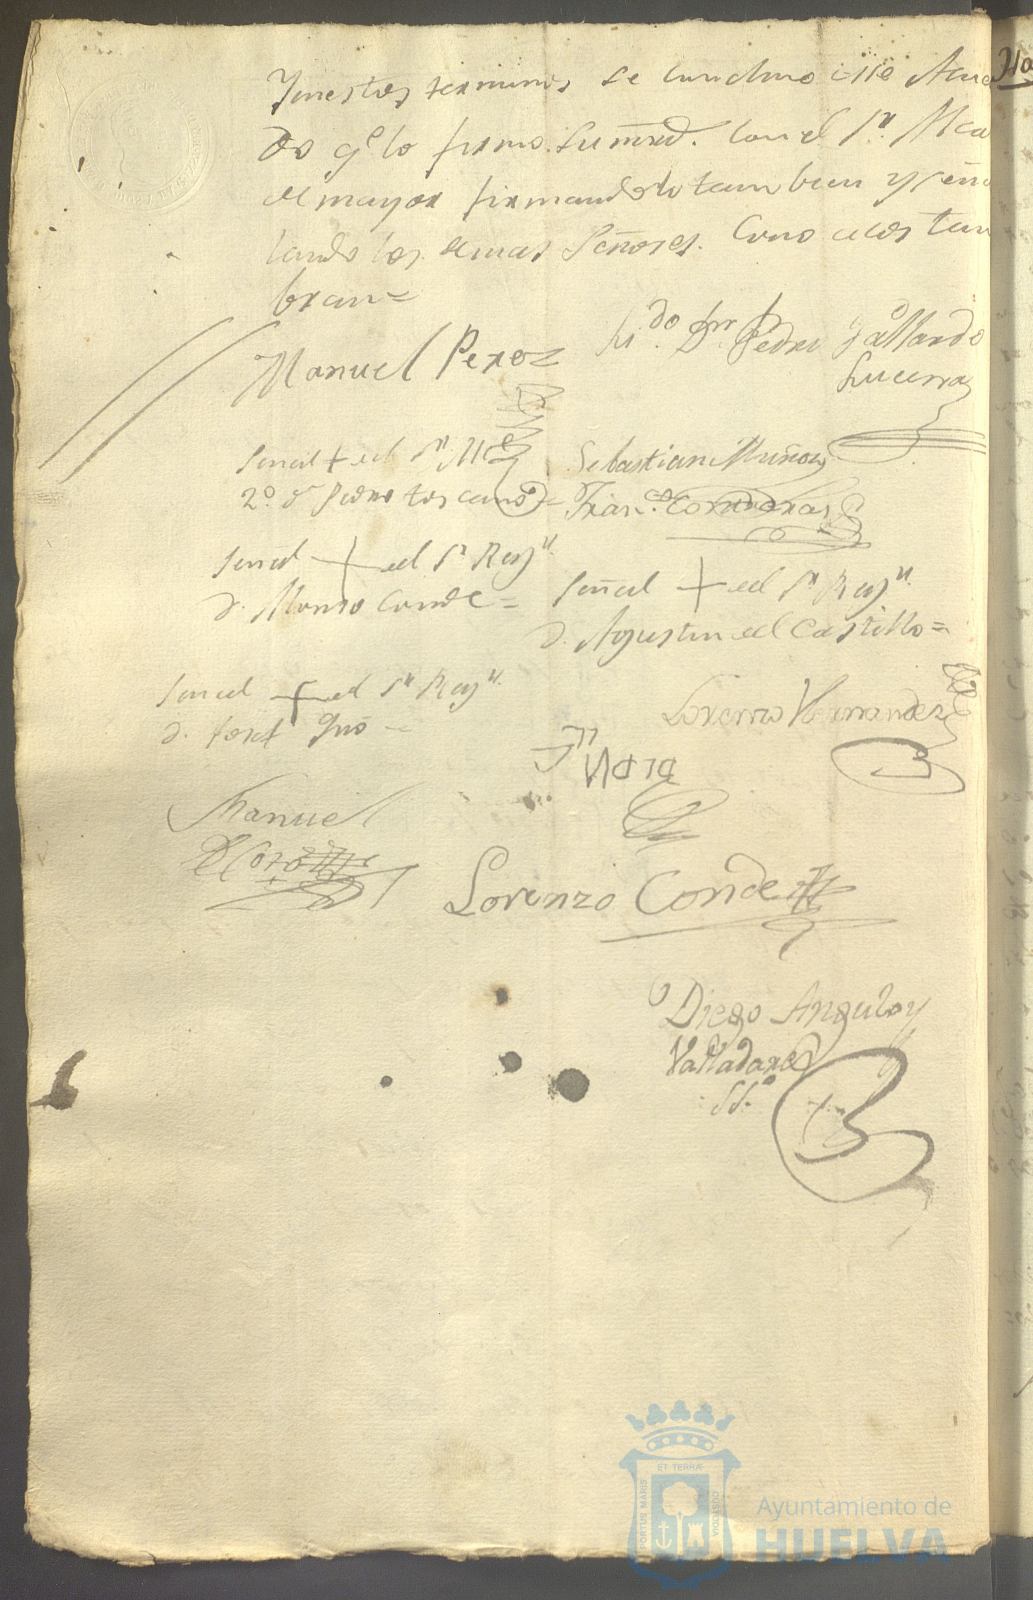 Yenestos terminos se concluio este Acuer
do q.e lo firmo su mrd. con el s.r Alcal
de mayor firmandolo tambien y seña
lando los demas señores. Como acos tum
bran=
Manuel Perez
Li.do Dn Pedro Gallardo
Lucena
Señal + del S.r Alc.e
2.º d. Pedro toscano =
Sebastian Muñoz
Fran.co Contreras
Señal + del S.r Rex.r
d. Alonso Conde =
Señal + del S.r Rex.r
d. Agustin del Castillo =
Señal + del S.r Rex.r
d. Josef
Lorenzo Hernandez
Manuel
Lorenzo Conde
Diego Angulo y
Valladares
SS.º
PORTUS MARIS ET TERRÆ CUSTODIA
Ayuntamiento de
HUELVA